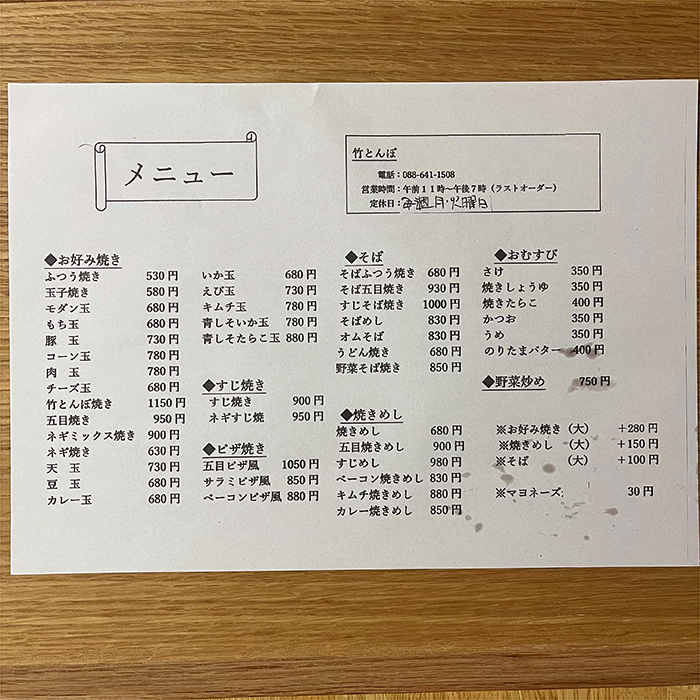 メニュー
竹とんぼ
電話：088-641-1508
営業時間：午前11時～午後7時（ラストオーダー）
定休日：毎週月・火曜日
◆お好み焼き
ふつう焼き 530円
玉子焼き 580円
モダン玉 680円
もち玉 680円
豚 玉 730円
コーン玉 780円
肉 玉 780円
チーズ玉 680円
竹とんぼ焼き 1150円
五目焼き 950円
ネギミックス焼き 900円
ネギ焼き 630円
天 玉 730円
豆 玉 680円
カレー玉 680円
いか玉 680円
えび玉 730円
キムチ玉 780円
青しそいか玉 780円
青しそたらこ玉 880円
◆すじ焼き
すじ焼き 900円
ネギすじ焼 950円
◆ピザ焼き
五目ピザ風 1050円
サラミピザ風 850円
ベーコンピザ風 880円
◆そば
そばふつう焼き 680円
そば五目焼き 930円
すじそば焼き 1000円
そばめし 830円
オムそば 830円
うどん焼き 680円
野菜そば焼き 850円
◆焼きめし
焼きめし 680円
五目焼きめし 900円
すじめし 980円
ベーコン焼きめし 830円
キムチ焼きめし 880円
カレー焼きめし 850円
◆おむすび
さけ 350円
焼きしょうゆ 350円
焼きたらこ 400円
かつお 350円
うめ 350円
のりたまバター 400円
◆野菜炒め 750円
※お好み焼き（大） ＋280円
※焼きめし （大） ＋150円
※そば （大） ＋100円
※マヨネーズ 30円